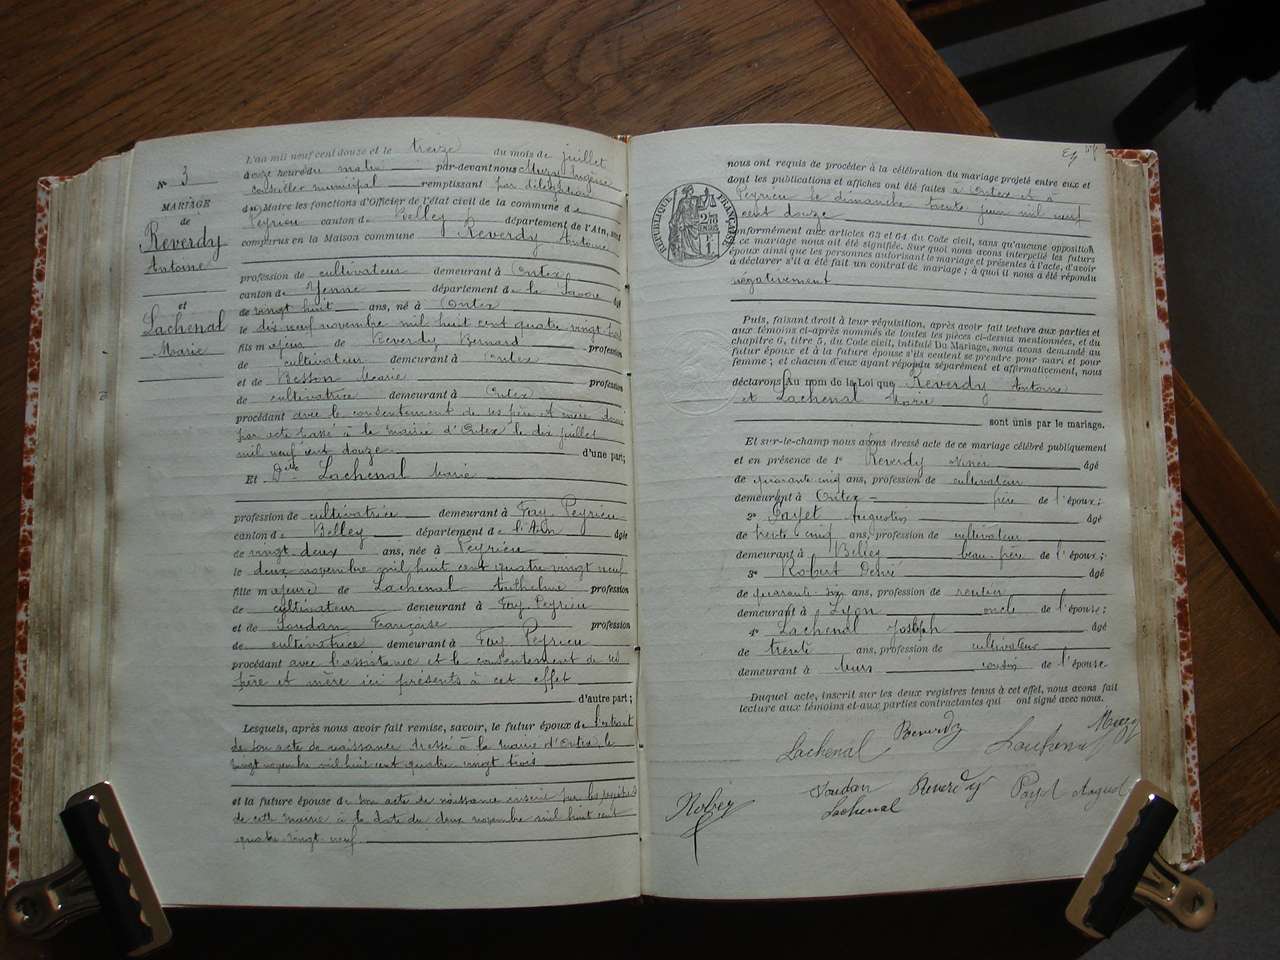 N° 3
MARIAGE
de
Reverdy
Antoine
et
Lachenal
Marie
L'an mil neuf cent douze et le treize du mois de juillet
à onze heures du matin par-devant nous Eugène
conseiller municipal remplissant par délégation
du Maire les fonctions d'Officier de l'état civil de la commune de
Peyrieu canton de Belley département de l'Ain, sont
comparus en la Maison commune Reverdy Antoine
profession de cultivateur demeurant à Ontex
canton de Yenne département de la Savoie âgé
de vingt huit ans, né à Ontex
le dix neuf novembre mil huit cent quatre vingt trois
fils majeur de Reverdy Bernard profession
de cultivateur demeurant à Ontex
et de Besson Marie profession
de cultivatrice demeurant à Ontex
procédant avec le consentement de ses père et mère donné
par acte passé à la mairie d'Ontex le dix juillet
mil neuf cent douze d'une part;
Et Dlle Lachenal Marie
profession de cultivatrice demeurant à Fay, Peyrieu
canton de Belley département de l'Ain âgée
de vingt deux ans, née à Peyrieu
le deux novembre mil huit cent quatre vingt neuf
fille majeure de Lachenal Anthelme profession
de cultivateur demeurant à Fay, Peyrieu
et de Soudan Françoise profession
de cultivatrice demeurant à Fay Peyrieu
procédant avec l'assistance et le consentement de ses
père et mère ici présents à cet effet
d'autre part;
Lesquels, après nous avoir fait remise, savoir, le futur époux de l'extrait
de son acte de naissance dressé à la mairie d'Ontex le
vingt novembre mil huit cent quatre vingt trois
et la future épouse de son acte de naissance inscrit sur les registres
de cette mairie à la date du deux novembre mil huit cent
quatre vingt neuf.
nous ont requis de procéder à la célébration du mariage projeté entre eux et
dont les publications et affiches ont été faites à Ontex et à
Peyrieu le dimanche trente juin mil neuf
cent douze
RÉPUBLIQUE FRANÇAISE
conformément aux articles 63 et 64 du Code civil, sans qu'aucune opposition
à ce mariage nous ait été signifiée. Sur quoi nous avons interpellé les futurs
époux ainsi que les personnes autorisant le mariage et présentes à l'acte, d'avoir
à déclarer s'il a été fait un contrat de mariage; à quoi il nous a été répondu
négativement
Puis, faisant droit à leur réquisition, après avoir fait lecture aux parties et
aux témoins ci-après nommés de toutes les pièces ci-dessus mentionnées, et du
chapitre 6, titre 5, du Code civil, intitulé Du Mariage, nous avons demandé au
futur époux et à la future épouse s'ils veulent se prendre pour mari et pour
femme; et chacun d'eux ayant répondu séparément et affirmativement, nous
déclarons Au nom de la Loi que Reverdy Antoine
et Lachenal Marie
sont unis par le mariage.
Et sur-le-champ nous avons dressé acte de ce mariage célébré publiquement
et en présence de 1° Reverdy âgé
de quarante cinq ans, profession de cultivateur
demeurant à Ontex frère de l'époux;
2° Payet Augustin âgé
de trente cinq ans, profession de cultivateur
demeurant à Belley beau-frère de l'époux;
3° Robert Désiré âgé
de quarante six ans, profession de rentier
demeurant à Lyon oncle de l'épouse;
4° Lachenal Joseph âgé
de trente ans, profession de cultivateur
demeurant à cousin de l'épouse
Duquel acte, inscrit sur les deux registres tenus à cet effet, nous avons fait
lecture aux témoins et aux parties contractantes qui ont signé avec nous.
Lachenal Reverdy
Soudan Reverdy Payet August
Lachenal